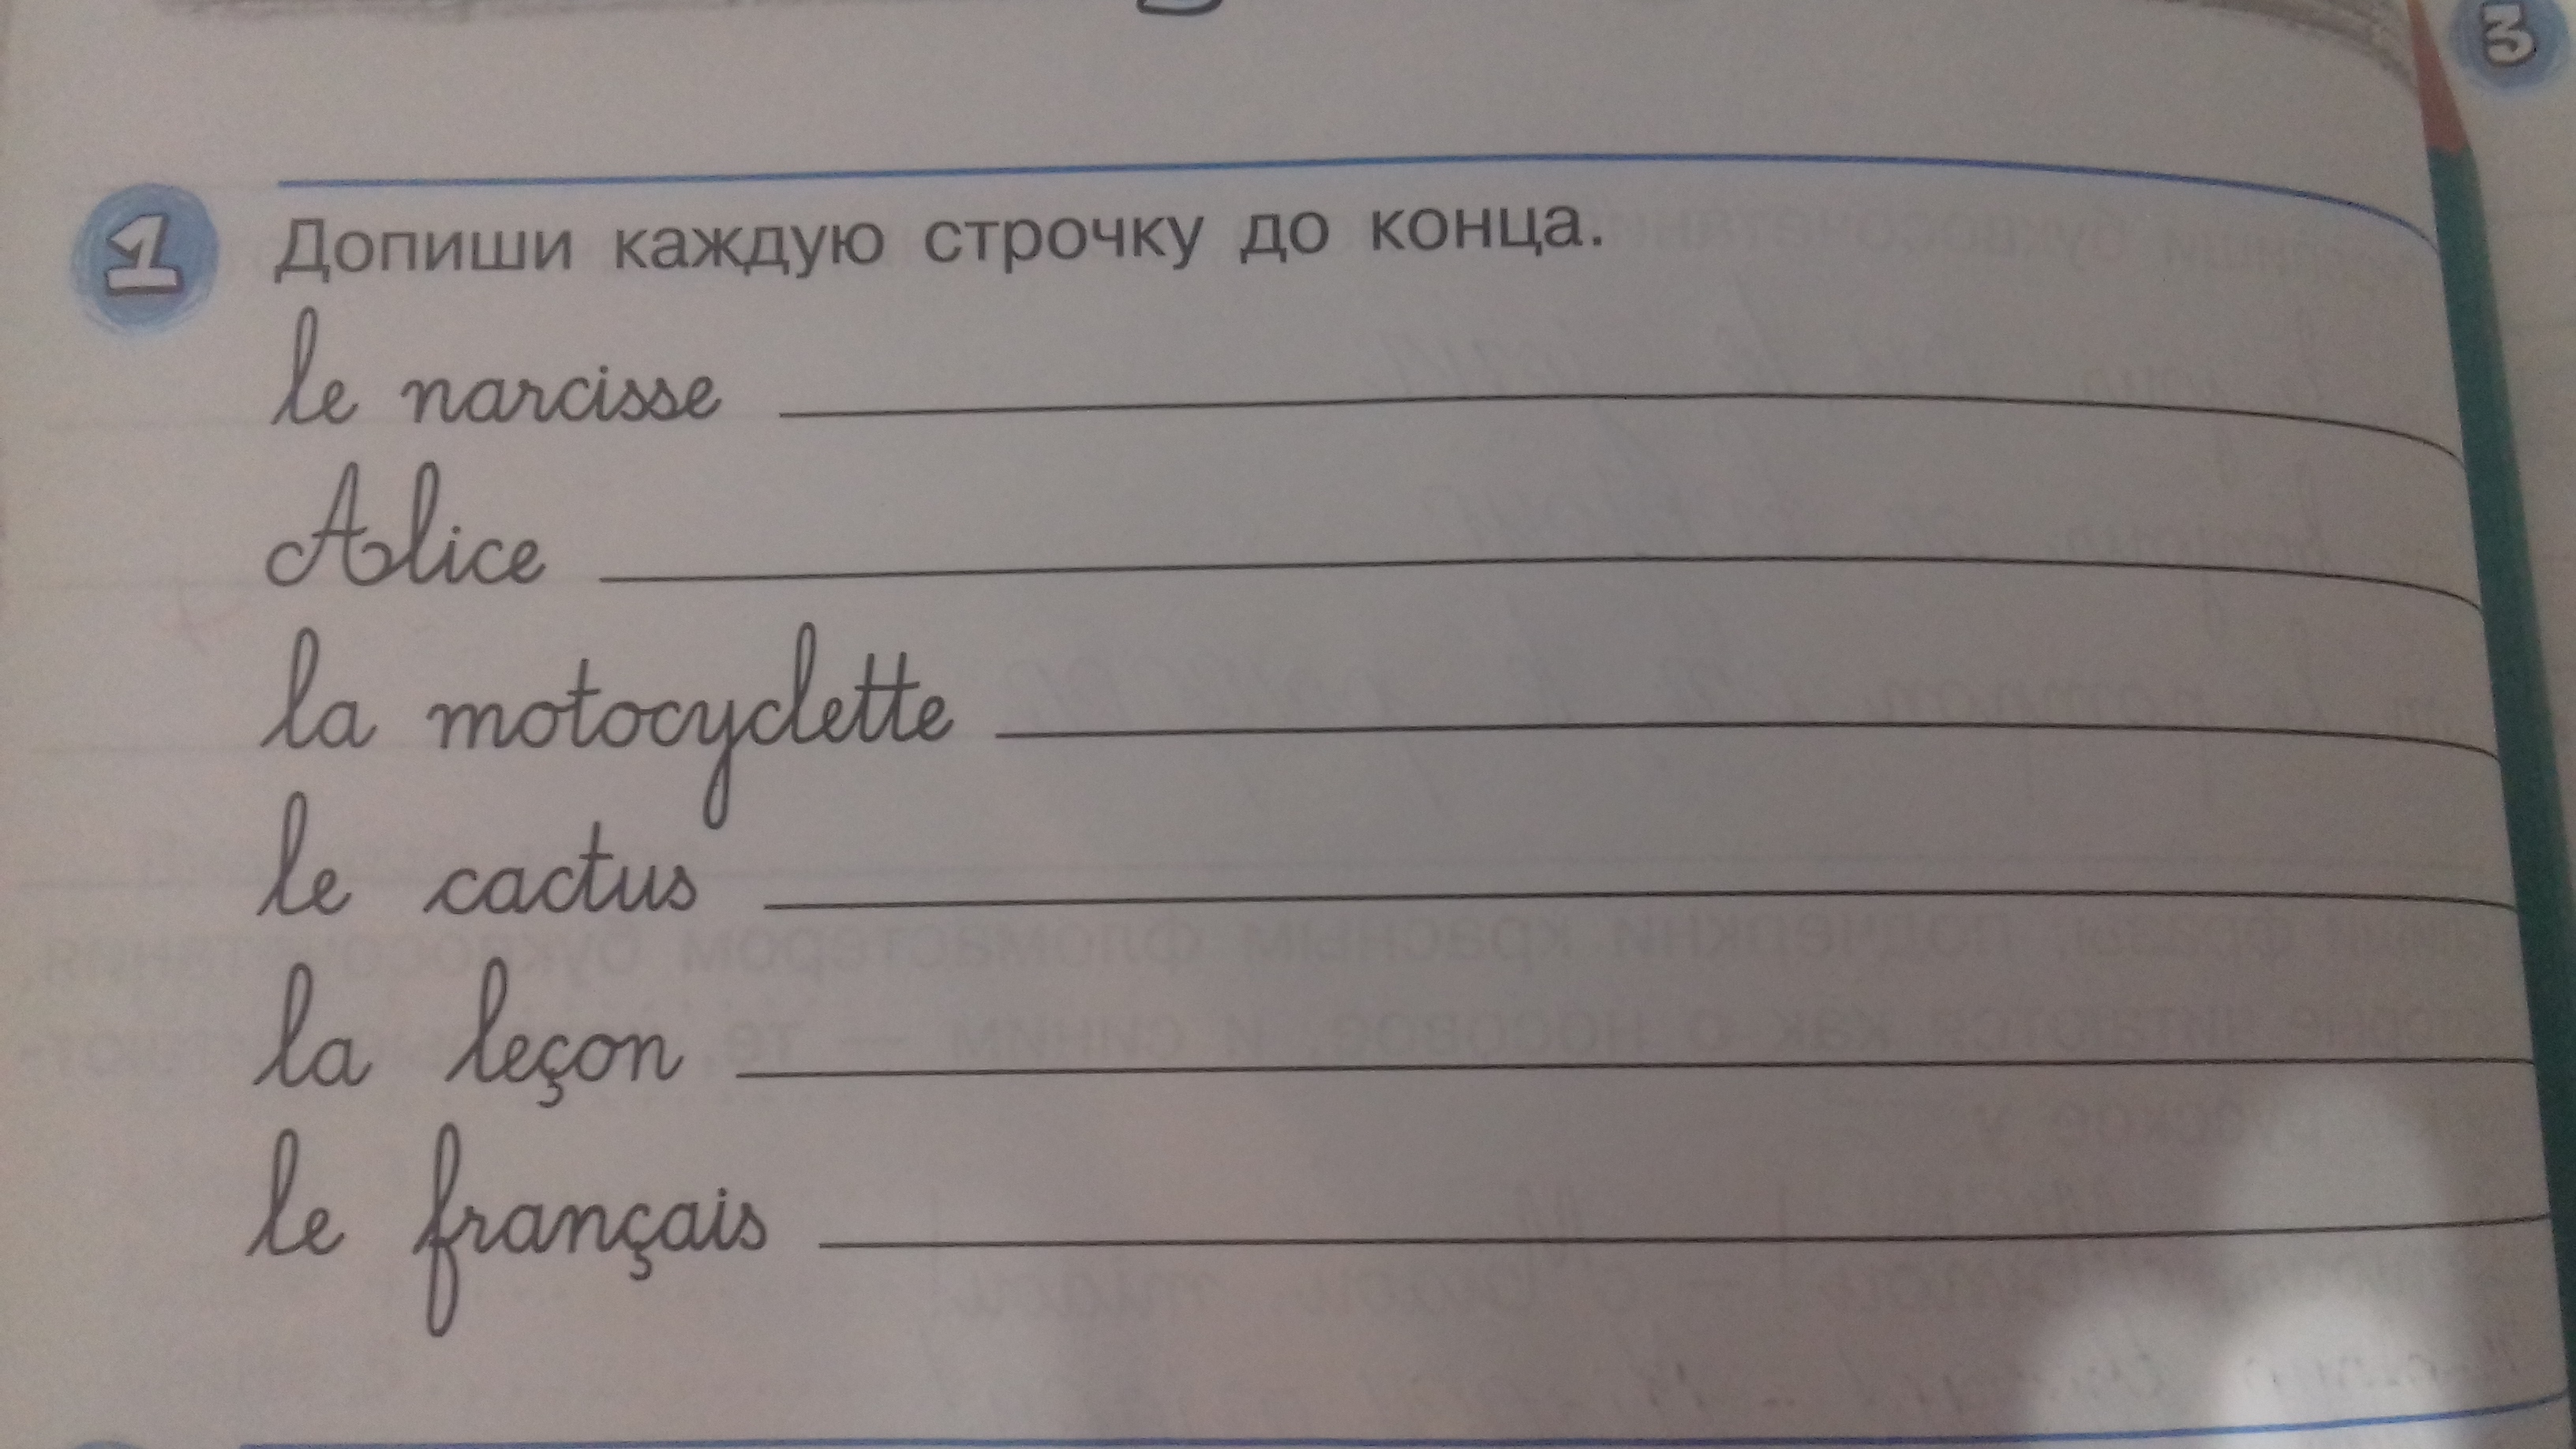 3
1 Допиши каждую строчку до конца.
le narcisse
Alice
la motocyclette
le cactus
la leçon
le français